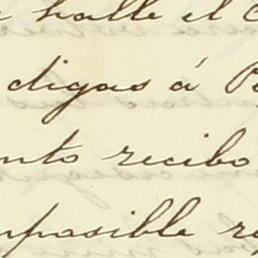 halle el
digas á
nto recibo
mposible